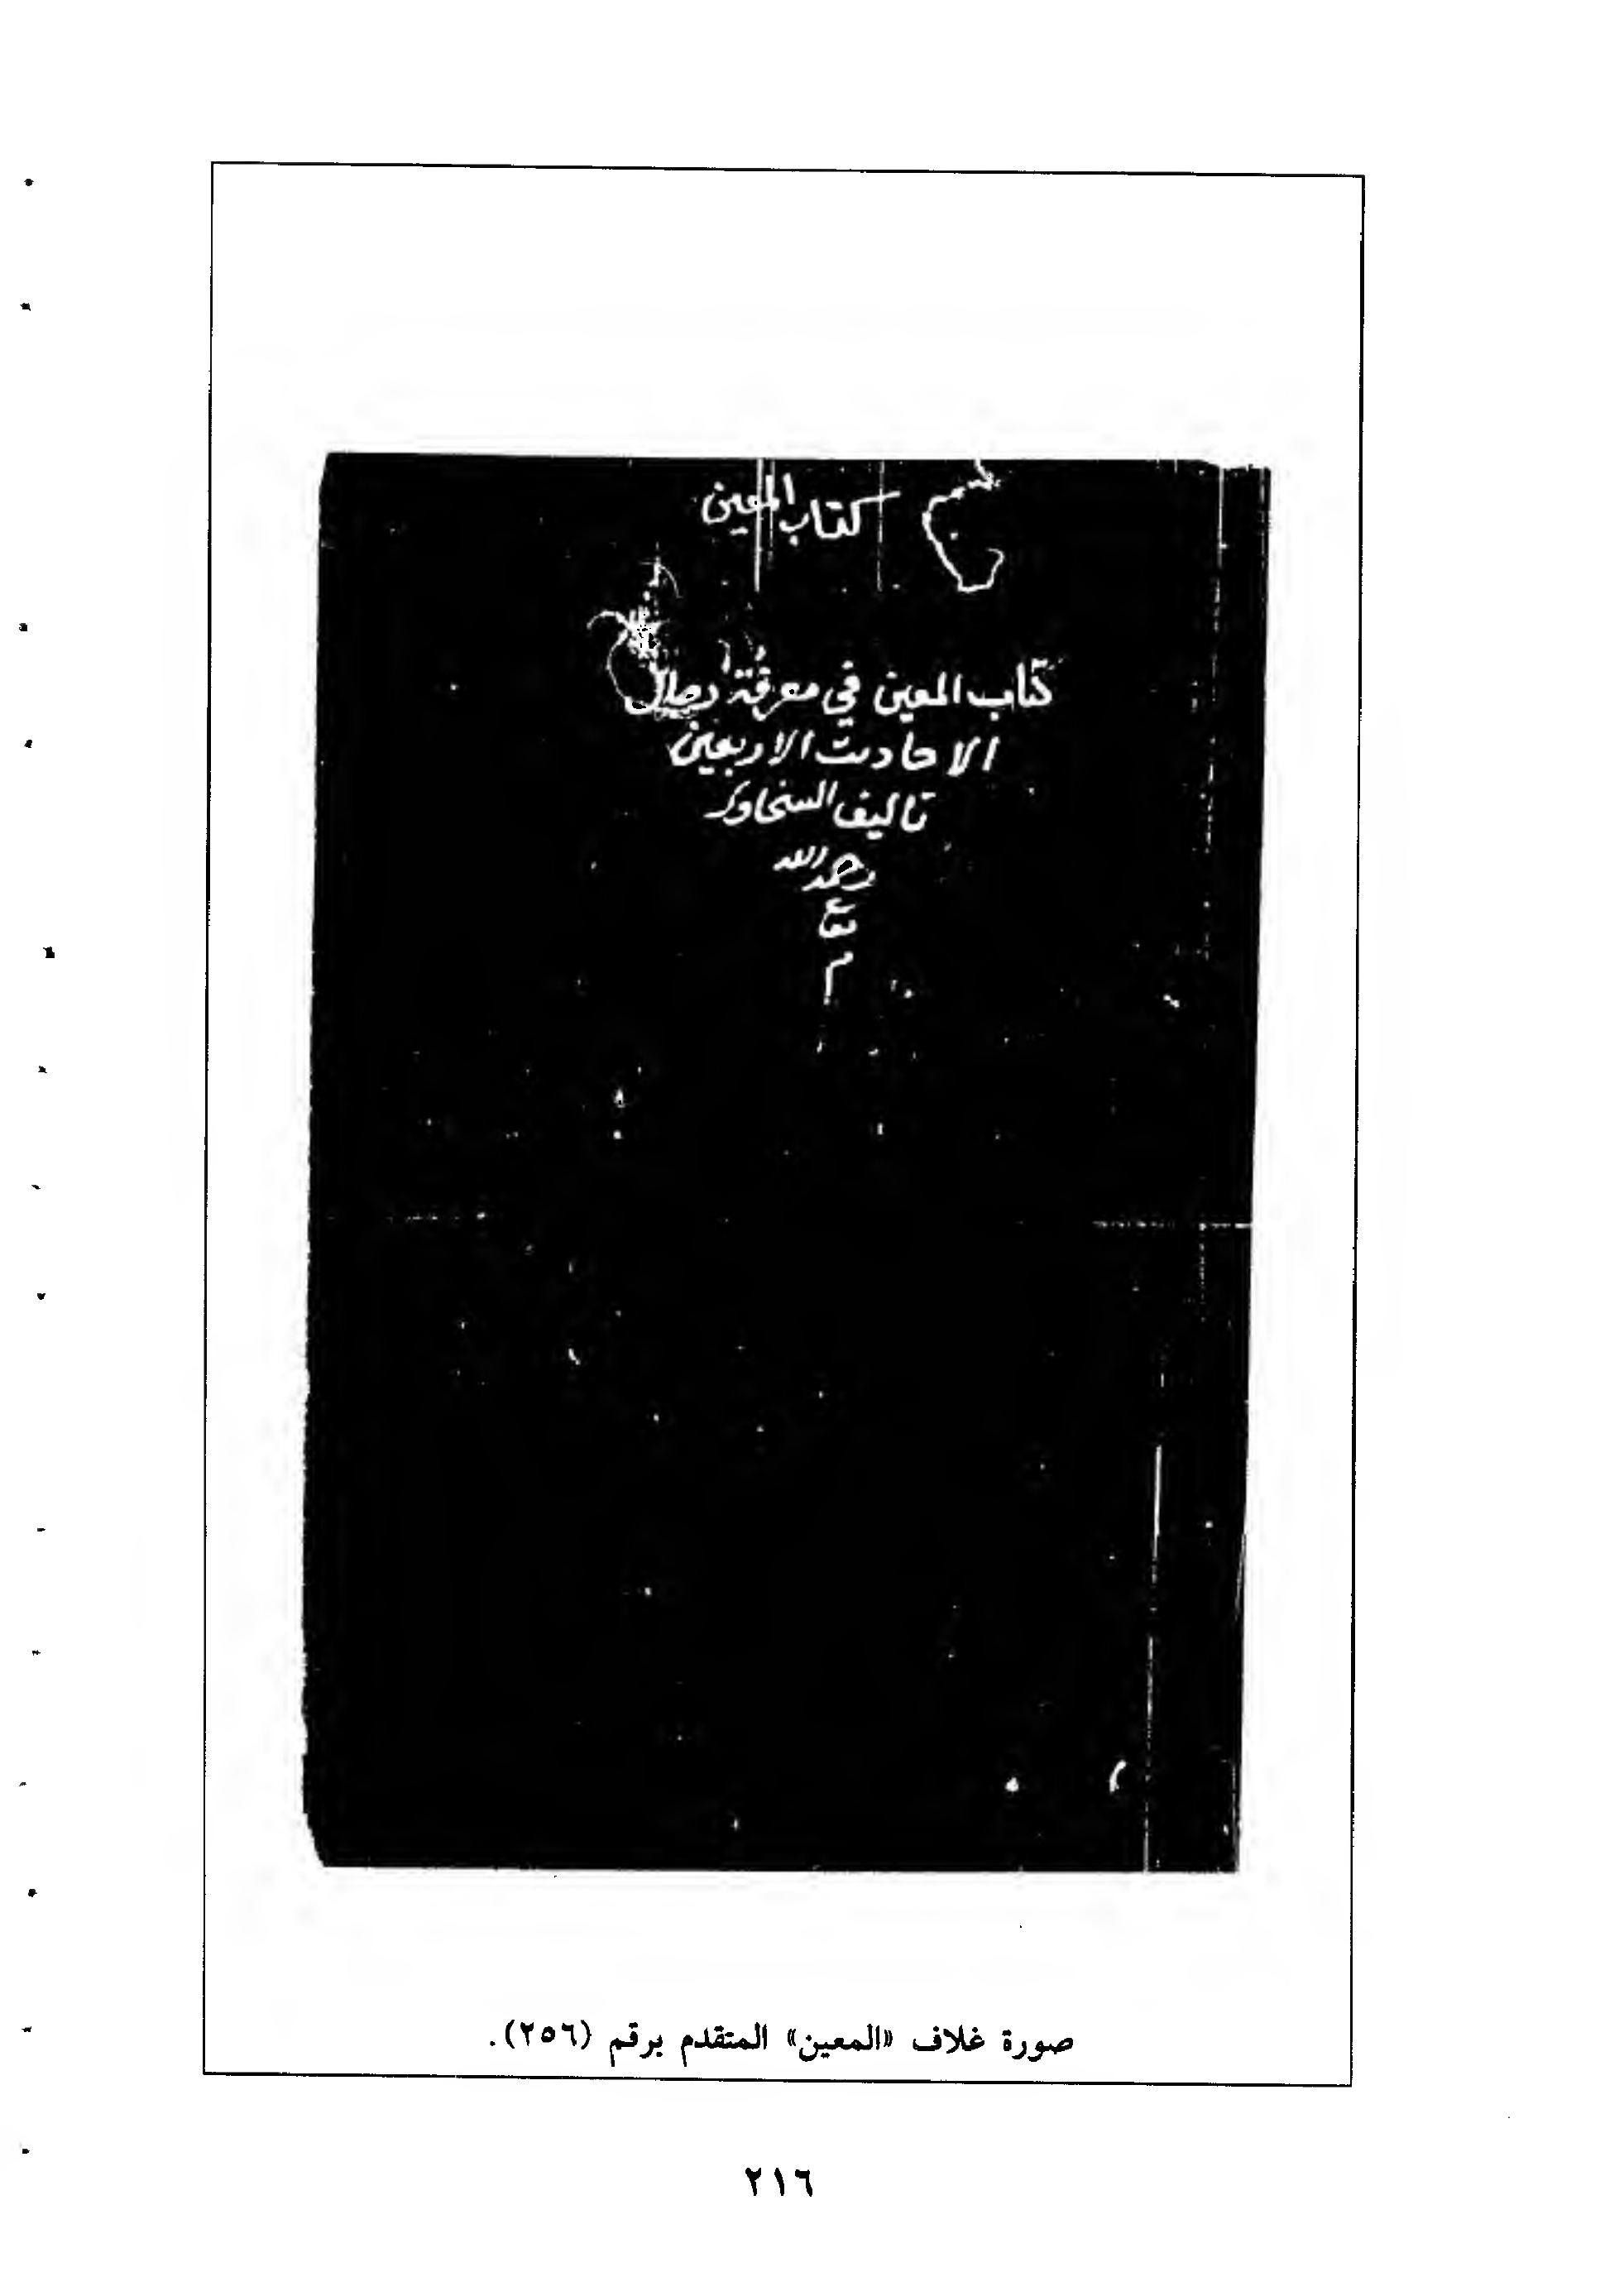 كتاب المعين
كتاب المعين في معرفة رجال
الاحاديث الاربعين
تاليف السخاوي
رحمه الله
تعا
م
صورة غلاف «المعين» المتقدم برقم (٢٥٦).
٢١٦